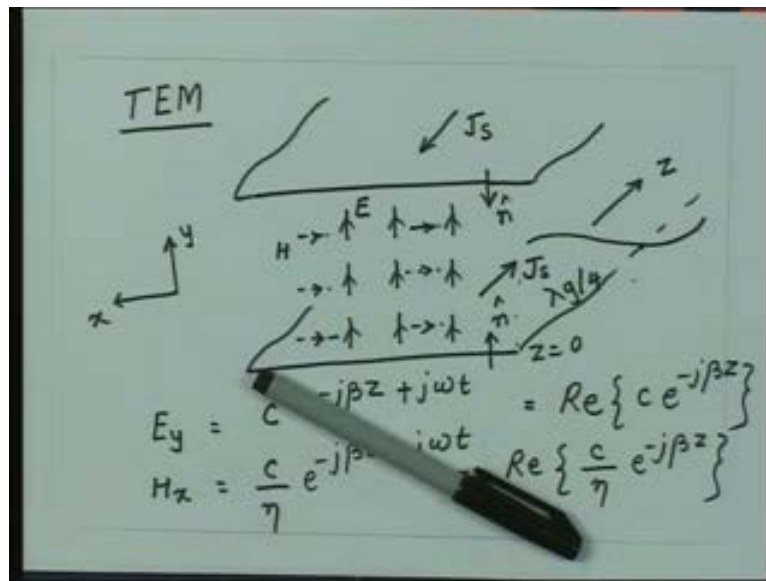 TEM
Js
z
E
n̂
H
y
x
Js
λg/4
n̂
z=0
Ey = c -jβz + jωt = Re{ c e^-jβz }
Hx = c/η e^-jβ jωt Re{ c/η e^-jβz }